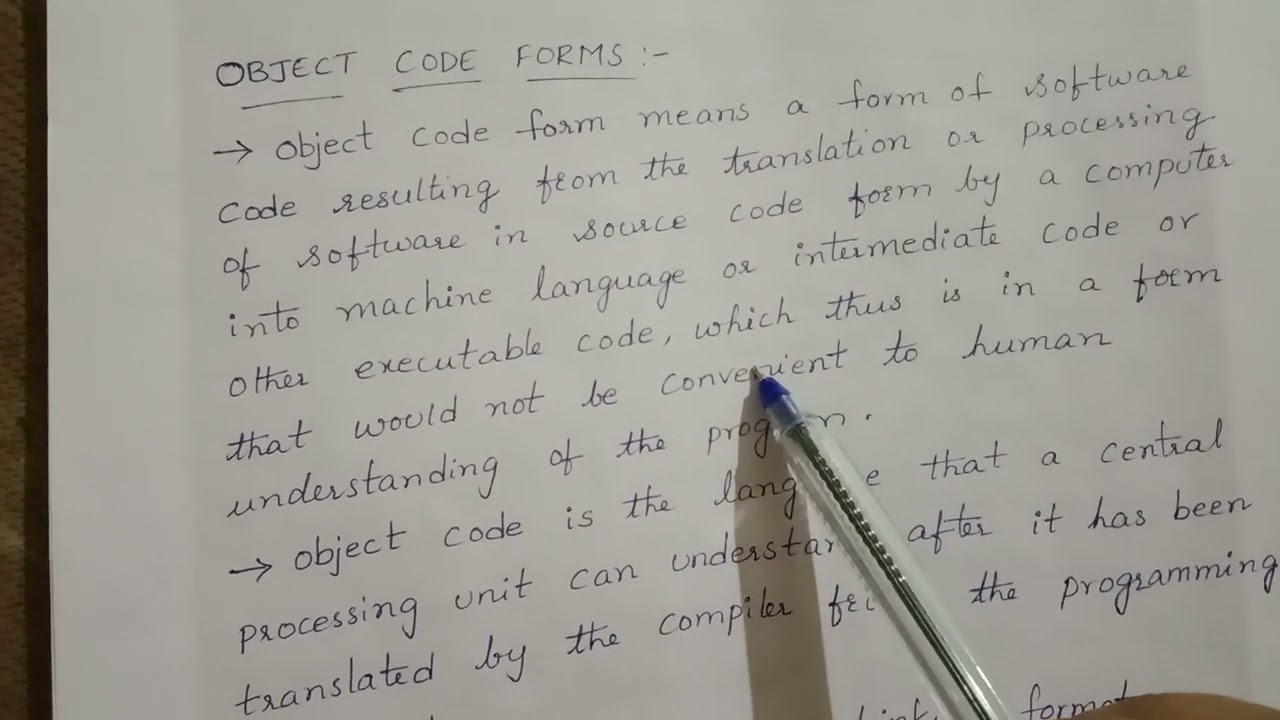 OBJECT CODE FORMS :-
→ Object code form means a form of software
code resulting from the translation or processing
of software in source code form by a computer
into machine language or intermediate code or
other executable code, which thus is in a form
that would not be convenient to human
understanding of the program.
→ object code is the language that a central
processing unit can understand after it has been
translated by the compiler from the programming
format